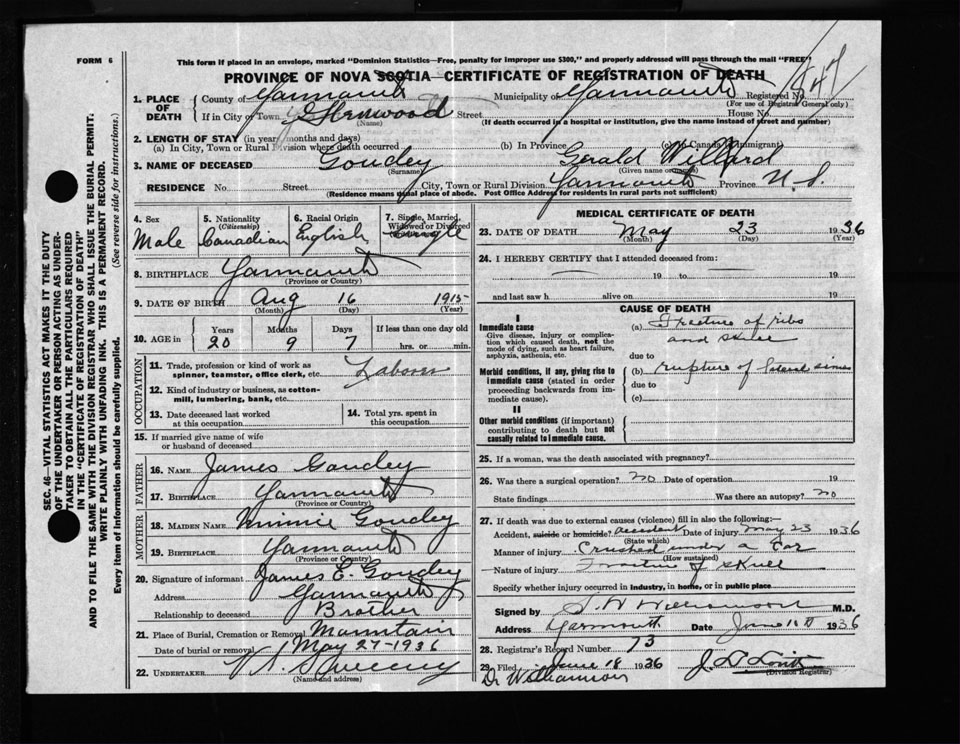 FORM 6
This form if placed in an envelope, marked "Dominion Statistics—Free, penalty for improper use $300," and properly addressed will pass through the mail "FREE"
PROVINCE OF NOVA SCOTIA—CERTIFICATE OF REGISTRATION OF DEATH
1. PLACE OF DEATH
County of Yarmouth Municipality of Yarmouth Registered No.
(For use of Registrar General only)
If in City or Town Glenwood Street House No.
(Name) (If death occurred in a hospital or institution, give the name instead of street and number)
2. LENGTH OF STAY (in years, months and days)
(a) In City, Town or Rural Division where death occurred (b) In Province (c) In Canada (if immigrant)
3. NAME OF DECEASED Goudey Gerald Willard
(Surname) (Given name or names)
RESIDENCE No. Street City, Town or Rural Division Yarmouth Province N. S.
(Residence means usual place of abode. Post Office Address for residents in rural parts not sufficient)
4. Sex Male
5. Nationality (Citizenship) Canadian
6. Racial Origin English
7. Single, Married, Widowed or Divorced Single
8. BIRTHPLACE Yarmouth
(Province or County)
9. DATE OF BIRTH Aug 16 1915
(Month) (Day) (Year)
10. AGE in Years Months Days If less than one day old
20 9 7 hrs. or min.
OCCUPATION
11. Trade, profession or kind of work as spinner, teamster, office clerk, etc. Laborer
12. Kind of industry or business, as cotton-mill, lumbering, bank, etc.
13. Date deceased last worked at this occupation
14. Total yrs. spent in this occupation
15. If married give name of wife or husband of deceased
FATHER
16. NAME James Goudey
17. BIRTHPLACE Yarmouth
(Province or County)
MOTHER
18. MAIDEN NAME Minnie Goudey
19. BIRTHPLACE Yarmouth
(Province or County)
20. Signature of informant James E. Goudey
Address Yarmouth
Relationship to deceased Brother
21. Place of Burial, Cremation or Removal Mountain
Date of burial or removal May 27-1936
22. UNDERTAKER V. S. Sweeny
(Name and address)
MEDICAL CERTIFICATE OF DEATH
23. DATE OF DEATH May 23 1936
(Month) (Day) (Year)
24. I HEREBY CERTIFY that I attended deceased from:
19 to 19
and last saw h alive on 19
CAUSE OF DEATH
I
Immediate cause
Give disease, injury or complication which caused death, not the mode of dying, such as heart failure, asphyxia, asthenia, etc.
(a) Fracture of ribs
and skull
due to
Morbid conditions, if any, giving rise to immediate cause (stated in order proceeding backwards from immediate cause).
(b) rupture of lateral sinus
due to
(c)
II
Other morbid conditions (if important) contributing to death but not causally related to immediate cause.
25. If a woman, was the death associated with pregnancy?
26. Was there a surgical operation? no Date of operation 19
State findings Was there an autopsy? no
27. If death was due to external causes (violence) fill in also the following:—
Accident, suicide or homicide? accident Date of injury May 23 1936
(State which)
Manner of injury Crushed under a car
(How sustained)
Nature of injury Fracture of skull
Specify whether injury occurred in industry, in home, or in public place
Signed by S. W. Williamson M.D.
Address Yarmouth Date June 1936
28. Registrar's Record Number 73
29. Filed June 18 1936
(Division Registrar)
Dr Williamson
SEC. 46—VITAL STATISTICS ACT MAKES IT THE DUTY OF THE UNDERTAKER OR PERSON ACTING AS UNDERTAKER TO OBTAIN ALL THE PARTICULARS REQUIRED IN THE "CERTIFICATE OF REGISTRATION OF DEATH" AND TO FILE THE SAME WITH THE DIVISION REGISTRAR WHO SHALL ISSUE THE BURIAL PERMIT.
WRITE PLAINLY WITH UNFADING INK. THIS IS A PERMANENT RECORD.
Every item of information should be carefully supplied. (See reverse side for instructions.)